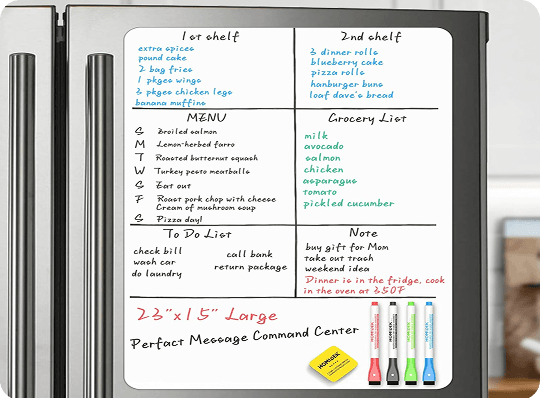 1st shelf
extra spices
pound cake
2 bag fries
1 pkges wings
3 pkges chicken legs
banana muffins
2nd shelf
3 dinner rolls
blueberry cake
pizza rolls
hamburger buns
loaf dave's bread
MENU
S Broiled salmon
M Lemon-herbed farro
T Roasted butternut squash
W Turkey pesto meatballs
S Eat out
F Roast pork chop with cheese
Cream of mushroom soup
S Pizza day!
Grocery List
milk
avocado
salmon
chicken
asparagus
tomato
pickled cucumber
To Do List
check bill
wash car
do laundry
call bank
return package
Note
buy gift for Mom
take out trash
weekend idea
Dinner is in the fridge, cook
in the oven at 350F
23"x15" Large
Perfact Message Command Center
HOMGEEK